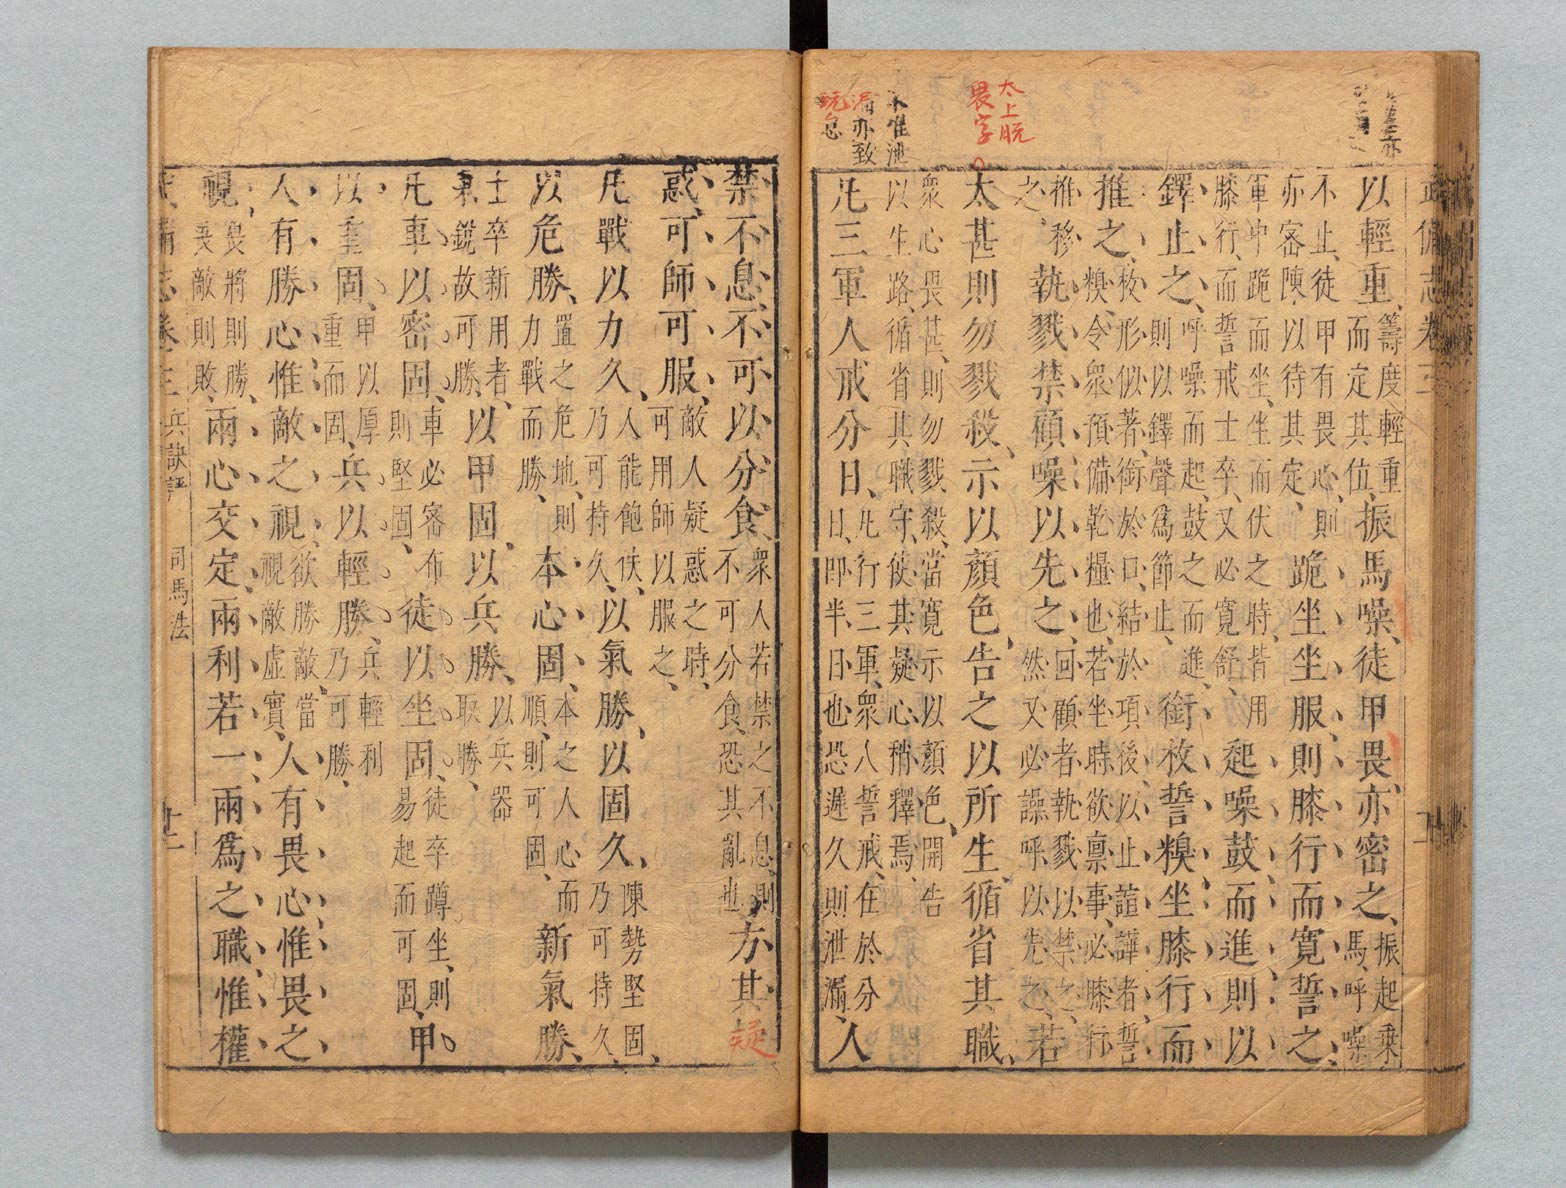 太上脫
畏字
不惟泄
漏亦致
玩怠
武備志卷三
以輕重、籌度輕重而定其位、振馬噪、徒甲畏、亦密之、振起乘馬、呼噪
不止、徒甲有畏心、則亦密陳、以待其定、跪坐坐服、則膝行而寬誓之、
軍中跪而坐、坐而伏之時、皆用膝行、而誓戒士卒、又必寬舒、起噪鼓而進則以
鐸止之、呼噪而起、鼓之而進、則以鐸聲為節止、銜枚誓糗坐膝行而
推之、枚形似著、銜於口、結於項後、以止諠譁者、誓糗、令衆預備乾糧也、若坐時欲禀事、必膝行
推移之、執戮禁顧噪以先之、回顧者、執戮以禁之、然又必譟呼以先之、若
太甚則勿戮殺、示以顏色、告之以所生、循省其職、
衆心畏甚、則勿戮殺、當寬示以顏色、開告以生路、循省其職守、使其疑心稍釋焉、
凡三軍人戒分日、凡行三軍、衆人誓戒、在於分日、即半日也、恐遲久則泄漏、人
禁不息、不可以分食、衆人若禁之不息、則不可分食、恐其亂也、方其疑
惑、可師可服、敵人疑惑之時、可用師以服之、
凡戰以力久、人能飽佚、乃可持久、以氣勝、以固久、陳勢堅固、乃可持久、
以危勝、置之危地、則力戰而勝、本心固、本之人心而順、則可固、新氣勝、
士卒新用者、氣銳故可勝、以甲固、以兵勝、以兵器取勝、
凡車以密固、車必審布則堅固、徒以坐固、徒卒蹲坐、則易起而可固、甲
以重固、甲以厚重而固、兵以輕勝、兵輕利乃可勝、
人有勝心、惟敵之視、欲勝敵、當視敵虛實、人有畏心、惟畏之
視、畏將則勝、畏敵則敗、兩心交定、兩利若一、兩為之職、惟權
武備志卷三 兵訣評 司馬法 十二